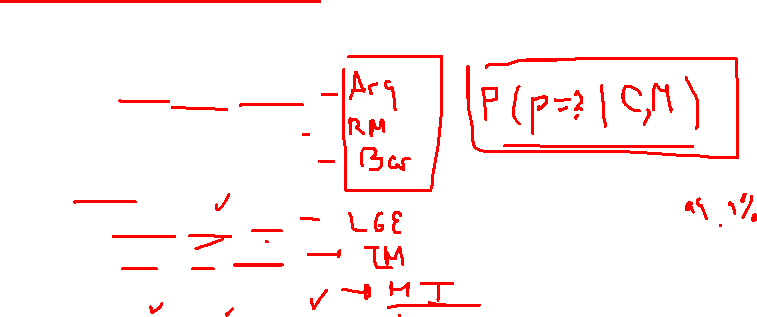 Arg
RM
Bar
P(p=? | C,M)
LGE
IM
MI